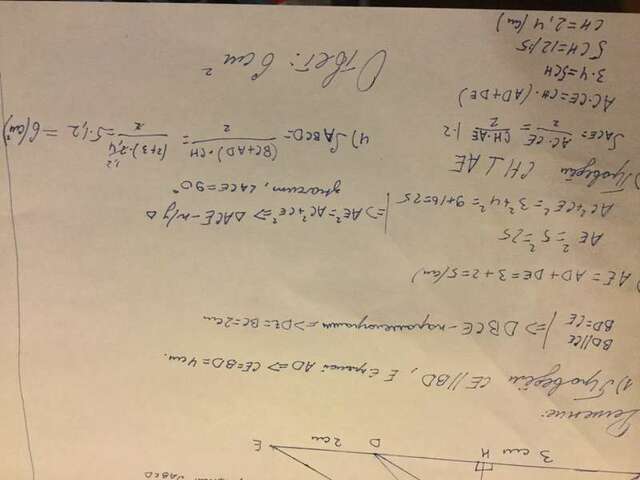 SABCD
3 см H D 2см E
Решение:
1) Проведём CE//BD, E ∈ прямой AD => CE=BD=4см.
BD//CE
BD=CE | => DBCE - параллелограмм => DE=BC=2см
) AE=AD+DE=3+2=5(см)
AE²=5²=25
AC²+CE²=3²+4²=9+16=25 | => AE²=AC²+CE² => ΔACE - п/у Δ
значит, ∠ACE=90°
) Проведём CH⊥AE
SACE= AC·CE/2 = CH·AE/2 |·2
AC·CE=CH·(AD+DE)
3·4=5CH
5CH=12/:5
CH=2,4(см)
4) SABCD= (BC+AD)·CH/2 = (2+3)·2,4/2 1,2 =5·1,2 =6(см²)
Ответ: 6см²